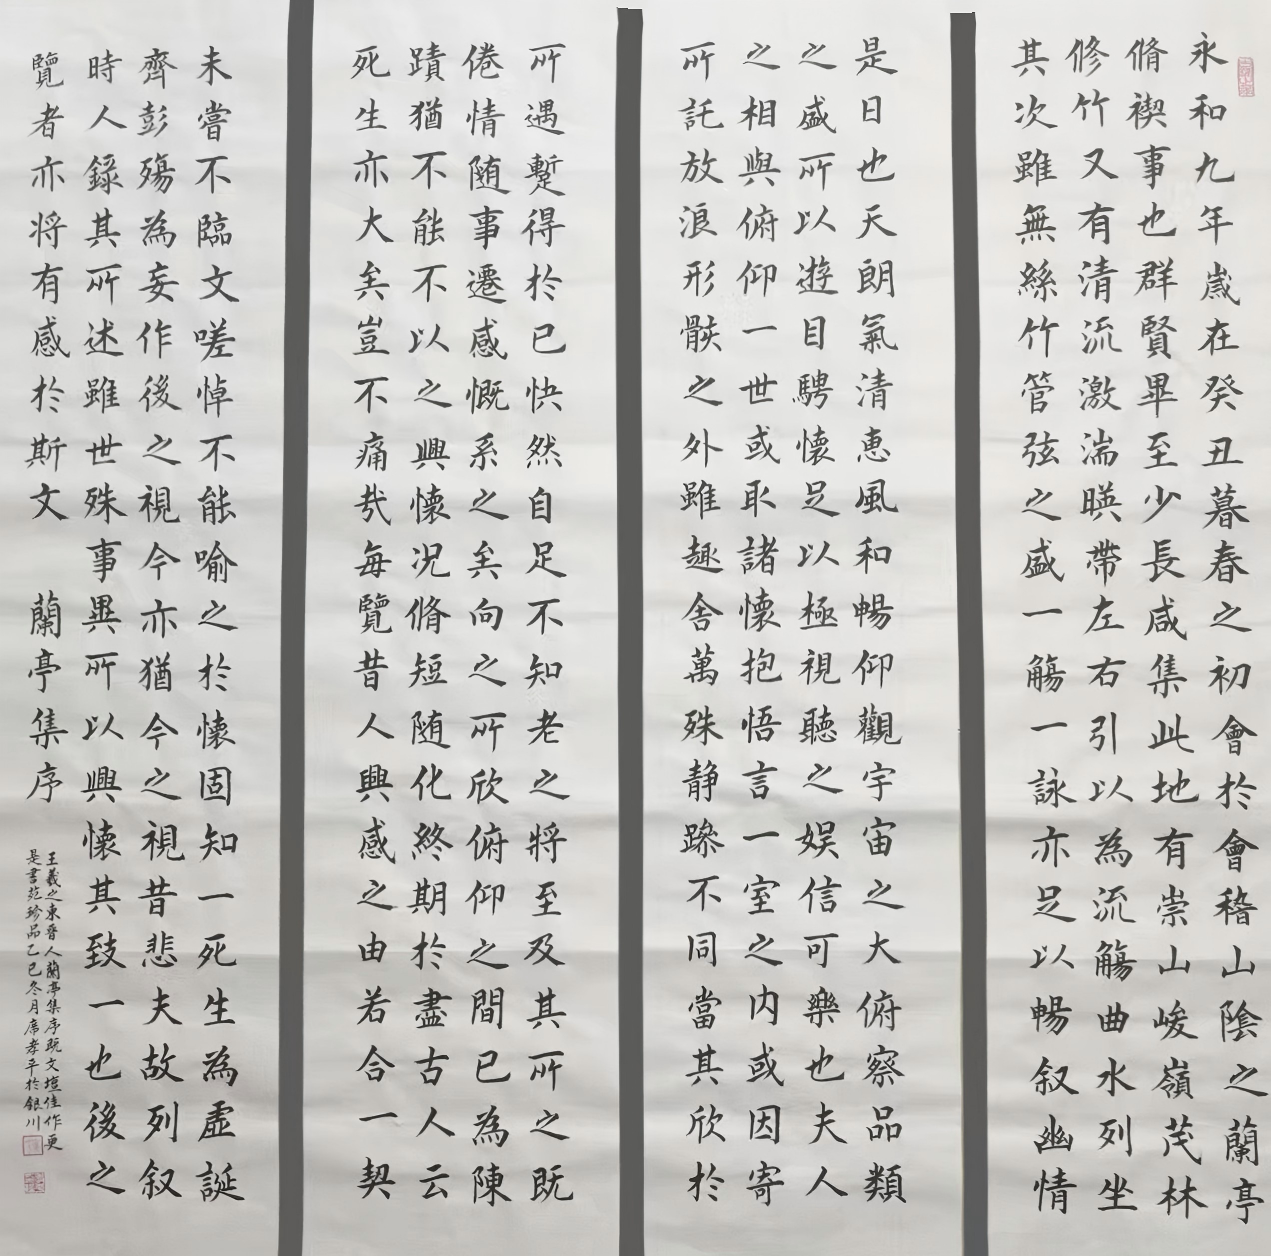 永和九年歲在癸丑暮春之初會於會稽山陰之蘭亭
脩禊事也群賢畢至少長咸集此地有崇山峻嶺茂林
修竹又有清流激湍暎帶左右引以為流觴曲水列坐
其次雖無絲竹管弦之盛一觴一詠亦足以暢叙幽情
是日也天朗氣清惠風和暢仰觀宇宙之大俯察品類
之盛所以遊目騁懷足以極視聽之娛信可樂也夫人
之相與俯仰一世或取諸懷抱悟言一室之内或因寄
所託放浪形骸之外雖趣舍萬殊静躁不同當其欣於
所遇蹔得於己快然自足不知老之將至及其所之既
倦情随事遷感慨系之矣向之所欣俯仰之間已為陳
蹟猶不能不以之興懷况脩短随化終期於盡古人云
死生亦大矣豈不痛哉每覽昔人興感之由若合一契
未嘗不臨文嗟悼不能喻之於懷固知一死生為虛誕
齊彭殤為妄作後之視今亦猶今之視昔悲夫故列叙
時人錄其所述雖世殊事異所以興懷其致一也後之
覽者亦将有感於斯文 蘭亭集序
王羲之東晉人蘭亭集序既文壇佳作更
是書苑珍品乙巳冬月席孝平於銀川